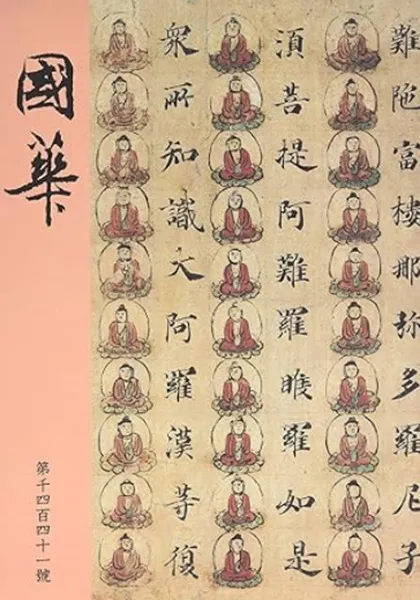 難陁富樓那弥多羅尼子
湏菩提阿難羅睺羅如是
衆所知識大阿羅漢等復
國華
第千四百四十一號